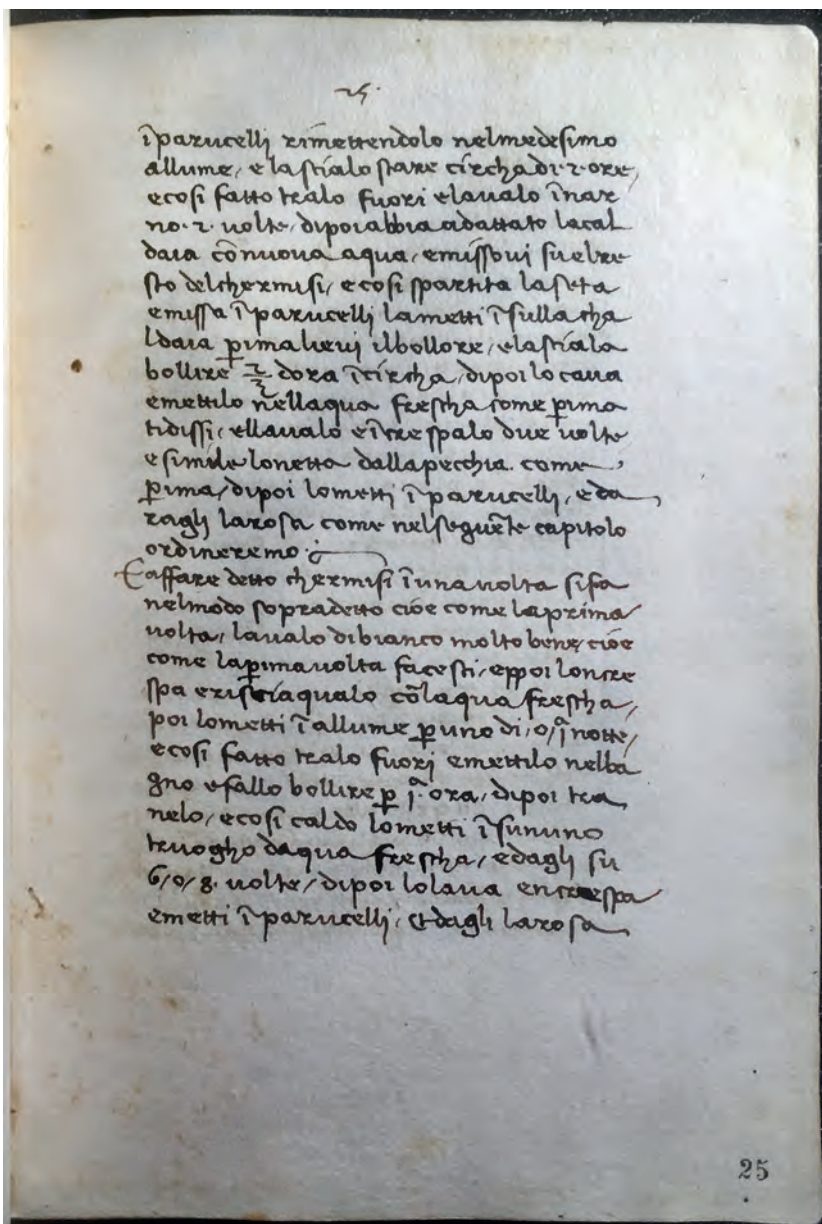 25.
ĩ parucelli rimettendolo nelmedesimo
allume, e lasscialo stare circha di .2. ore,
ecosi fatto tralo fuori elavalo ĩnar
no .2. uolte, dipoi abbia adattato lacal
daia cõ nuoua aqua, emissoui su elre
sto delchermisi, ecosi spartita laseta
emissa ĩ parucelli lametti ĩ sulla cha
ldaia p̃ima lieui ilbollore, elasciala
bollire 2/3 dora ĩ circha, dipoi lo caua
emettilo nellaqua frescha come p̃ima
tidissi, ellaualo eĩcrespalo due uolte
esimile lonetta dallapecchia. come
p̃ima, dipoi lometti ĩ parucelli, eda
ragli larosa come nelseguẽte capitolo
ordineremo
Eaffare detto chermisi ĩ una uolta sifa
nelmodo sopradetto cioe come laprima
uolta, laualo dibianco molto bene, cioe
come lap̃ima uolta facesti, eppoi loncre
spa erisciaqualo cõ laqua frescha,
poi lometti ĩ allume p̱ uno di, o, jª notte,
ecosi fatto tralo fuori emettilo nelba
gno efallo bollire p̱ jª ora, dipoi tra
nelo, ecosi caldo lometti ĩ sununo
truogho daqua frescha, edagli su
6, o, 8. uolte, dipoi lolaua encrespa
emetti ĩ parucelli, & dagli larosa
25